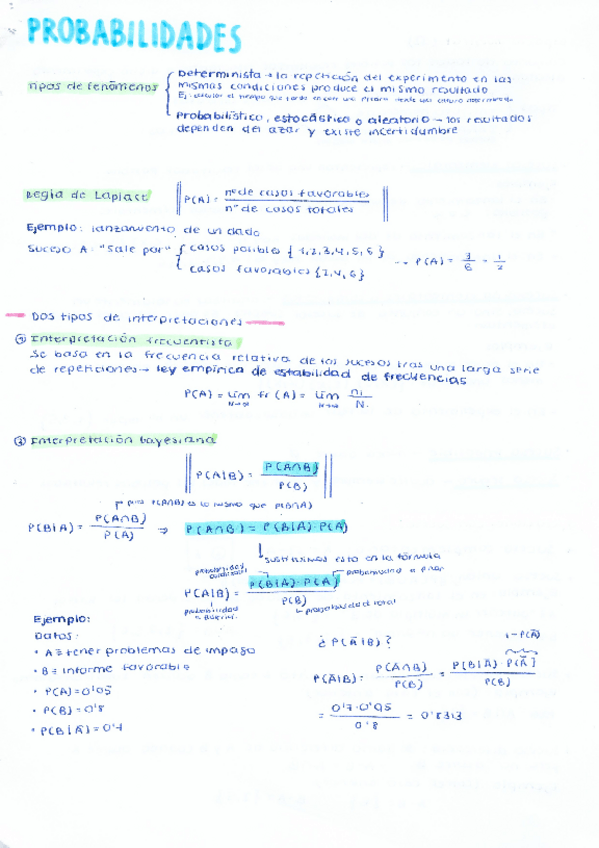 PROBABILIDADES
Tipos de fenómenos
Determinista → la repetición del experimento en las
mismas condiciones produce el mismo resultado
Ej: calcular el tiempo que tarda en caer una
Probabilístico, estocástico o aleatorio → los resultados
dependen del azar y existe incertidumbre
Regla de Laplace
P(A) = nº de casos favorables / nº de casos totales
Ejemplo: lanzamiento de un dado
Suceso A: "Sale par" { casos posibles {1,2,3,4,5,6}
casos favorables {2,4,6}
→ P(A) = 3/6 = 1/2
Dos tipos de interpretaciones
① Interpretación frecuentista
Se basa en la frecuencia relativa de los sucesos tras una larga serie
de repeticiones → ley empírica de estabilidad de frecuencias
P(A) = lim fr (A) = lim ni / N
② Interpretación bayesiana
P(A|B) = P(A∩B) / P(B)
P(A∩B) es lo mismo que P(B∩A)
P(B|A) = P(A∩B) / P(A) ⇒ P(A∩B) = P(B|A)·P(A)
sustituimos esto en la fórmula
probabilidad a priori
P(A|B) = P(B|A)·P(A) / P(B)
probabilidad
probabilidad total
Ejemplo:
Datos:
• A ≡ tener problemas de impago
• B ≡ informe favorable
• P(A) = 0'05
• P(B) = 0'8
• P(B|Ā) = 0'7
¿P(Ā|B)?
1-P(A)
P(Ā|B) = P(Ā∩B) / P(B) = P(B|Ā)·P(Ā) / P(B)
= 0'7·0'95 / 0'8 = 0'8313